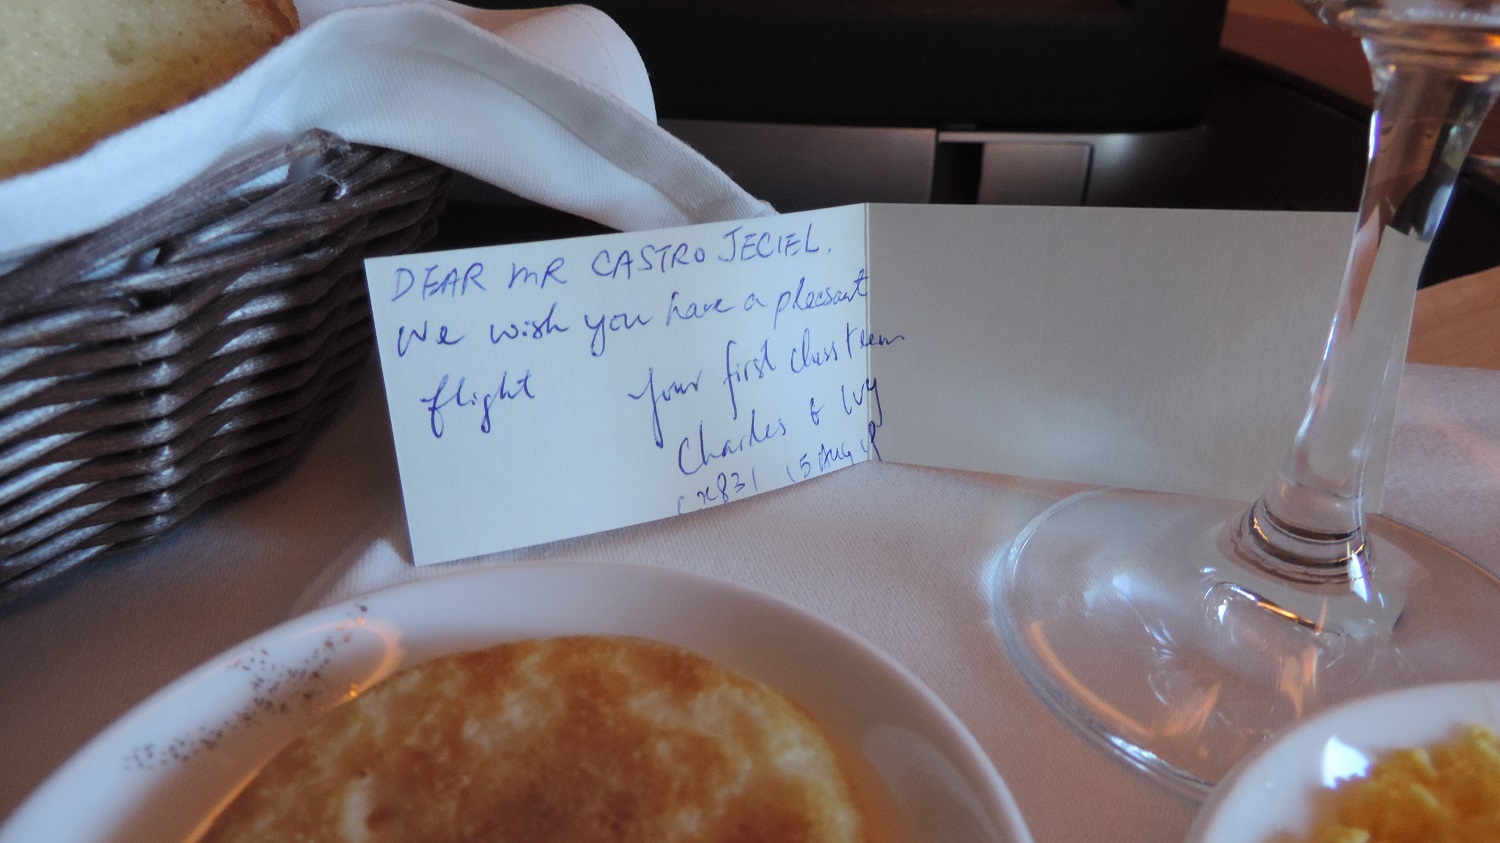 DEAR MR CASTRO JECIEL.
We wish you have a pleasant
flight
Your first class team
Charles & Ivy
CX831 15 AUG